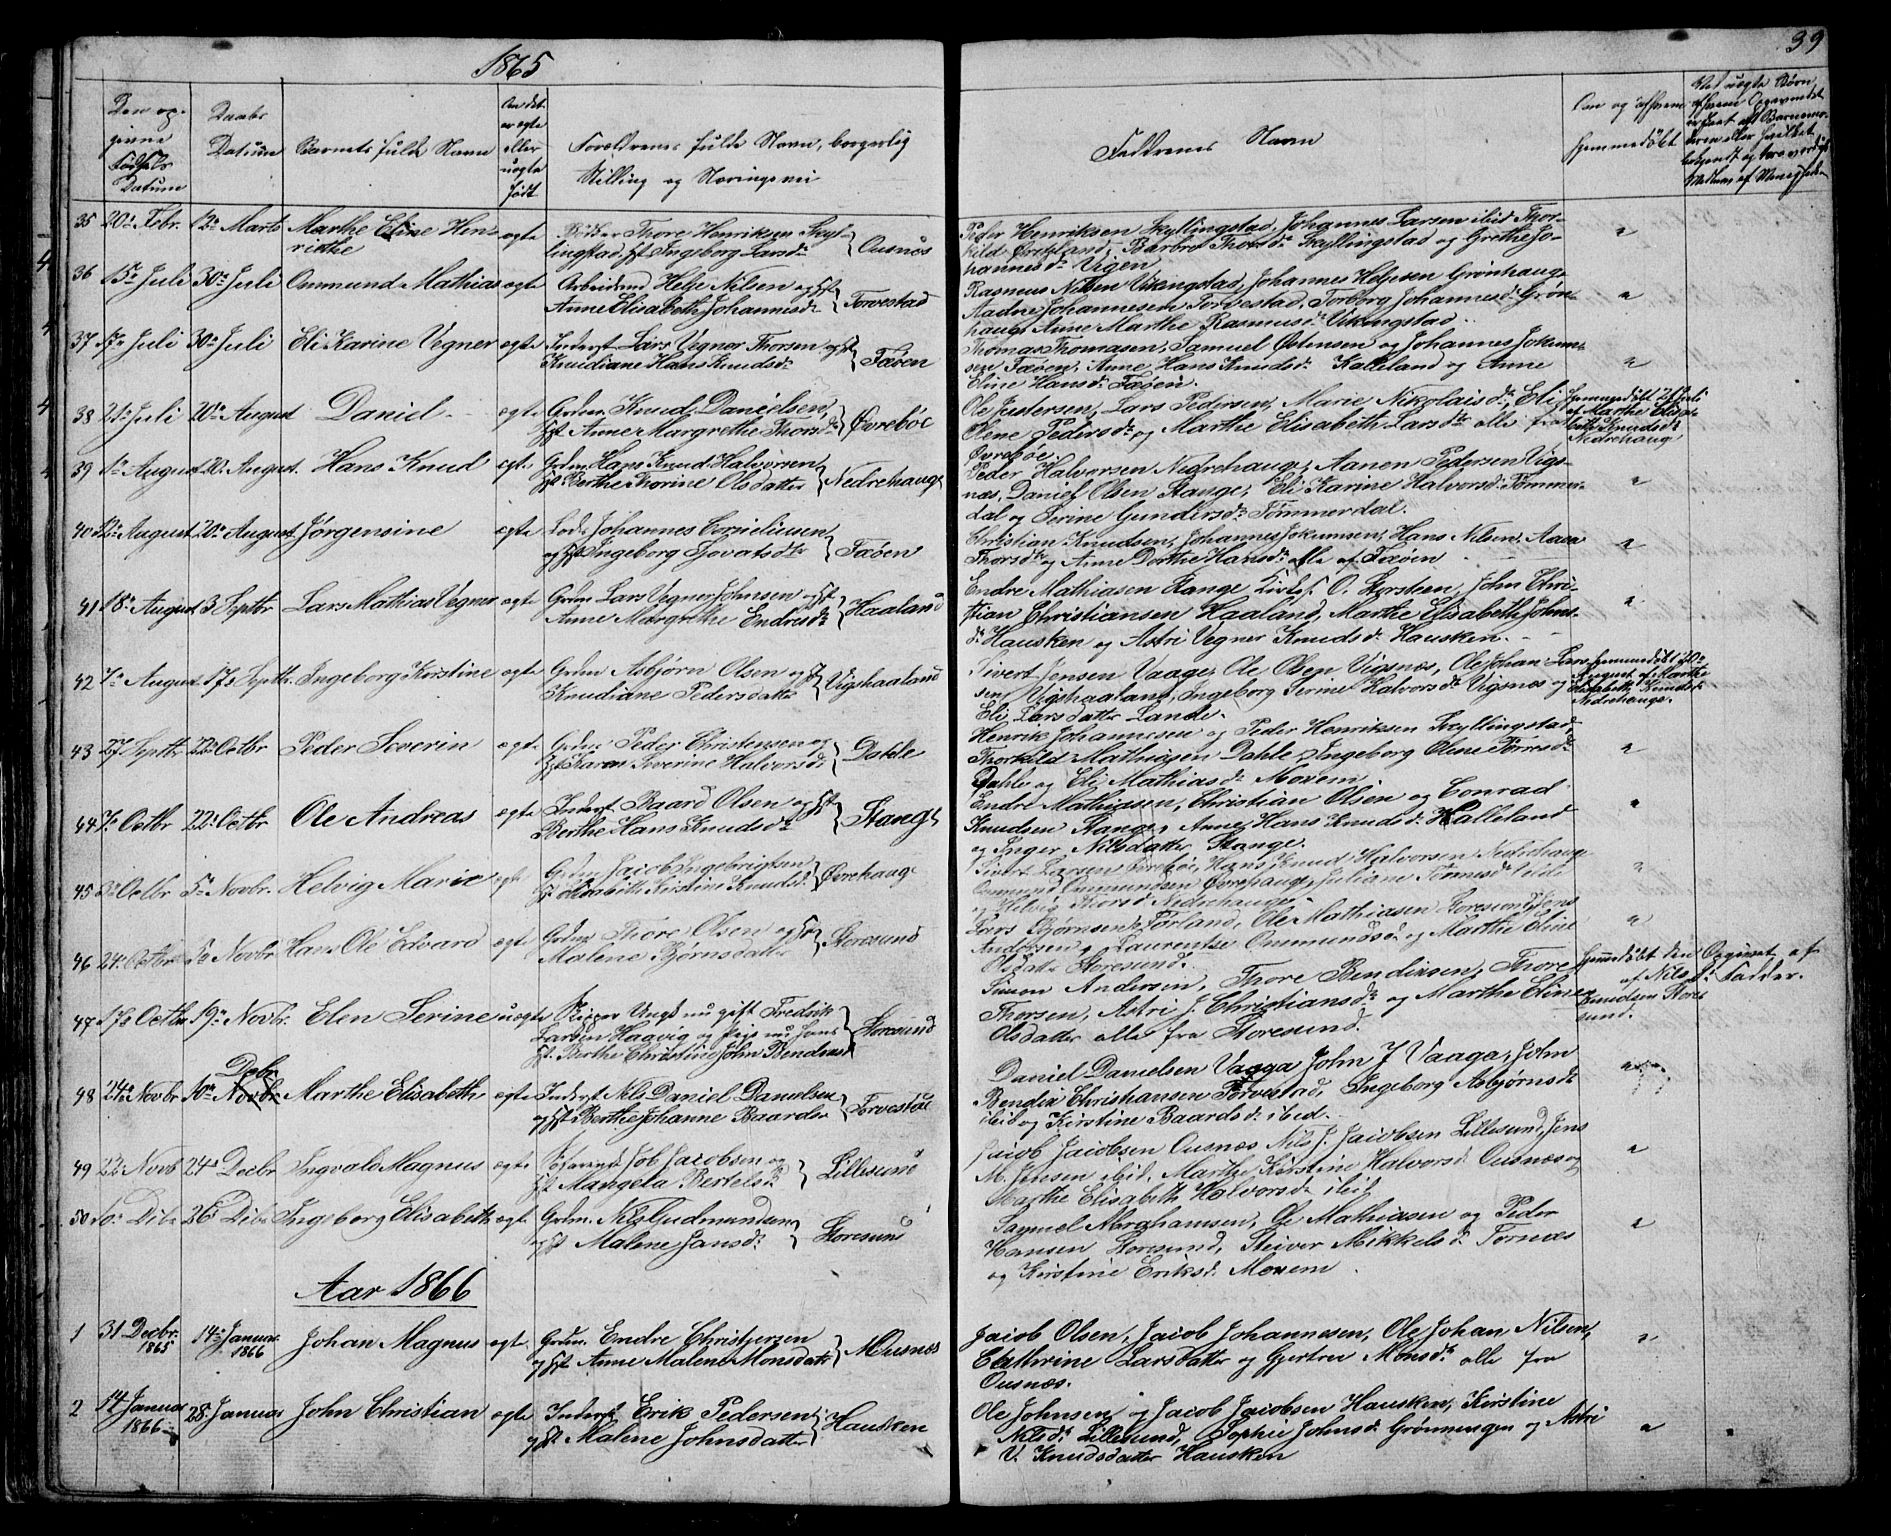 1865
39
Den op-
givne
Fødsels
Datum
Daabs
Datum
Barnets fulde Navn
Om det
er ægte
eller
uægte
født
Forældrenes fulde Navn, borgerlig
Stilling og Næringsvei
Faddrenes Navn
Om og af hvem
hjemmedøbt
35 20de Febr. 12te Marts Marthe Eline Hen-
rikke ægte Thore Henriksen Skyl-
lingstad, Hst Ingeborg Larsd. Ousnæs
Peder Henriksen Skyllingstad, Johannes Larsen ibid, Thor-
kild Øvreland, Barbro Thorsd. Skyllingstad og Grethe Jo-
hannesd. Vigen
36 15de Juli 30te Juli Ommund Mathias ægte Arbeidsmd Helje Nilsen og Hst
Anne Elisabeth Johannesd. Torvestad
Rasmus Nilsen Vikingstad, Johannes Heljesen Grønhaug,
Aadne Johannesen Torvestad, Torborg Johannesd. Grøn-
haug, Anne Marthe Rasmusd. Vikingstad
37 Juli 30te Juli Eli Karine Vegner ægte Inderst Lars Vegner Thorsen og Hst
Knudiane Hans Knudsd. Fæøen
Thomas Thomasen, Samuel Østensen og Johannes Jokum-
sen Fæøen, Anne Hans Knudsd. Kalleland og Anne
Eline Hansd. Fæøen.
38 21de Juli 20de August Daniel ægte Grdm. Knud Danielsen,
Hst Anne Margrethe Thorsd. Øvrebøe
Ole Justersen, Lars Pedersen, Marie Nikolaisd., Eli
Olene Pedersd. og Marthe Elisabeth Larsd. alle fra
Øvrebøe.
Hjemmedøbt 21de Juli
af Marthe Elisa-
beth Knudsd.
Nedrehaug
39 1te August 20 August Hans Knud ægte Grdm. Hans Knud Halvorsen
Hst Berthe Thorine Olsdatter Nedrehauge
Peder Halvorsen Nedrehauge, Aanen Pedersen Vigs-
næs, Daniel Olsen Stange, Eli Karine Halvorsd. Tømmer-
dal og Serine Gundersd. Tømmerdal.
40 12te August 20de August Jørgensine ægte Lods Johannes Corneliusen
og Hst Ingeborg Govatsdtr Fæøen
Christian Knudsen, Johannes Jokumsen, Hans Nilsen, Aasa
Thorsdtr og Anne Dorthe Hansd. alle af Fæøen
41 18de August 3 Septbr Lars Mathias Vegner ægte Grdm Lars Vegner Johnsen og Hst
Anne Margrethe Endresd. Haaland
Endre Mathiasen Stange, Kirkes. O. Storsteen, John Chri-
stian Christiansen Haaland, Marthe Elisabeth Johns-
d. Hausken og Astri Vegner Knudsd. Hausken.
42 7de August 17de Septbr. Ingeborg Kirstine ægte Grdm Asbjørn Olsen og Hst
Knudiane Pedersdatter Vigshaaland
Sivert Jensen Vaage, Ole Olsen Vigsnæs, Ole Johan Lars-
sen Vigshaaland, Ingeborg Serine Halvorsd. Vigsnæs og
Eli Larsdatter Lande.
Hjemmedøbt
August af Marthe
Elisabeth Knudsd.
Nedrehauge.
43 27 Septbr 22de Octbr Peder Severin ægte Grdm Peder Christensen og
Hst Karen Severine Halvorsd. Dahle
Henrik Johannesen og Peder Henriksen Skyllingstad,
Thorkild Mathiasen Dahle, Ingeborg Olene Torresd.
Dahle og Eli Mathiasd. Moxem
44 7de Octbr 22de Octbr Ole Andreas ægte Inderst Baard Olsen og Hst
Berthe Hans Knudsd. Stange
Endre Mathiasen, Christian Olsen og Conrad
Knudsen Stange, Anne Hans Knudsd. Kalleland
og Inger Nilsdatter Stange.
45 Octbr 5te Novbr. Helvig Marie ægte Grdm Jacob Ingebrigtsen
Hst Elisabeth Kirstine Knudsd. Øvrehauge
Sivert Larsen Øvrebøe, Hans Knud Halvorsen Nedrehauge
Ommund Ommundsen Øvrehauge, Juliane Tønnesd. ibid
og Helvig Thorsd. Nedrehauge.
46 24de Octbr 5te Novbr Hans Ole Edvard ægte Grdm Thore Olsen og Hst
Malene Bjørnsdatter Storesund
Lars Bjørnsen Førland, Ole Mathiasen Storesund, Jens
Andersen, Laurentse Ommundsd. og Marthe Eline
Olsdatter Storesund.
47 17de Octbr 19de Novbr. Elen Serine uægte nu gift Fredrik
Larsen Haavig og Pige nu hans
Hst Berthe Christine John Bendiksd. Storesund
Simon Andersen, Thore Bendixsen, Thore
Thorsen, Astri J. Christiansd. og Marthe Eline
Olsdatter alle fra Storesund.
Hjemmedøbt den
af Nils
Knudsen Store-
sund.
Opgivet af
Fadder.
48 24de Novbr 10de Decbr Novbr Marthe Elisabeth ægte Inderst Nils Daniel Danielsen
og Hst Berthe Johanne Baardsd. Torvestad
Daniel Danielsen Vaaga, John J Vaaga, John
Bendix Christiansen Torvestad, Ingeborg Asbjørnsd.
ibid og Kirstine Baardsd. ibid.
49 22de Novb 24de Decbr Ingvald Magnus ægte Job Jacobsen og
Hst Mangela Bertelsd. Lillesund
Jacob Jacobsen Ousnæs, Nils J. Jacobsen Lillesund, Jens
M. Jensen ibid, Marthe Kirstine Halvorsd. Ousnæs og
Marthe Elisabeth Halvorsd. ibid
50 10de Dcbr 26de Dcbr Ingeborg Elisabeth ægte Grdm. Nils Gudmundsen
og Hst Malene Jansd. Storesund
Samuel Abrahamsen, Ole Mathiasen og Peder
Hansen Storesund, Mikkelsd. Førnæs
og Kirstine Eriksd. Moxem.
Aar 1866
1 31 Decbr. 1865 14de Januar 1866 Johan Magnus ægte Grdm. Endre Christjersen
og Hst Anne Malene Monsdatter Ousnæs
Jacob Olsen, Jacob Johannesen, Ole Johan Nilsen,
Cathrine Larsdatter og Gjertrue Monsd. alle fra
Ousnæs.
2 14 Januar 1866 28 Januar John Christian ægte Inderst Erik Pedersen
og Hst Malene Johnsdatter Hausken
Ole Johnsen og Jacob Jacobsen Hausken, Kirstine
Nilsd. Lillesund, Sophie Johnsd. Grønningen og Astri
V. Knudsdatter Hausken